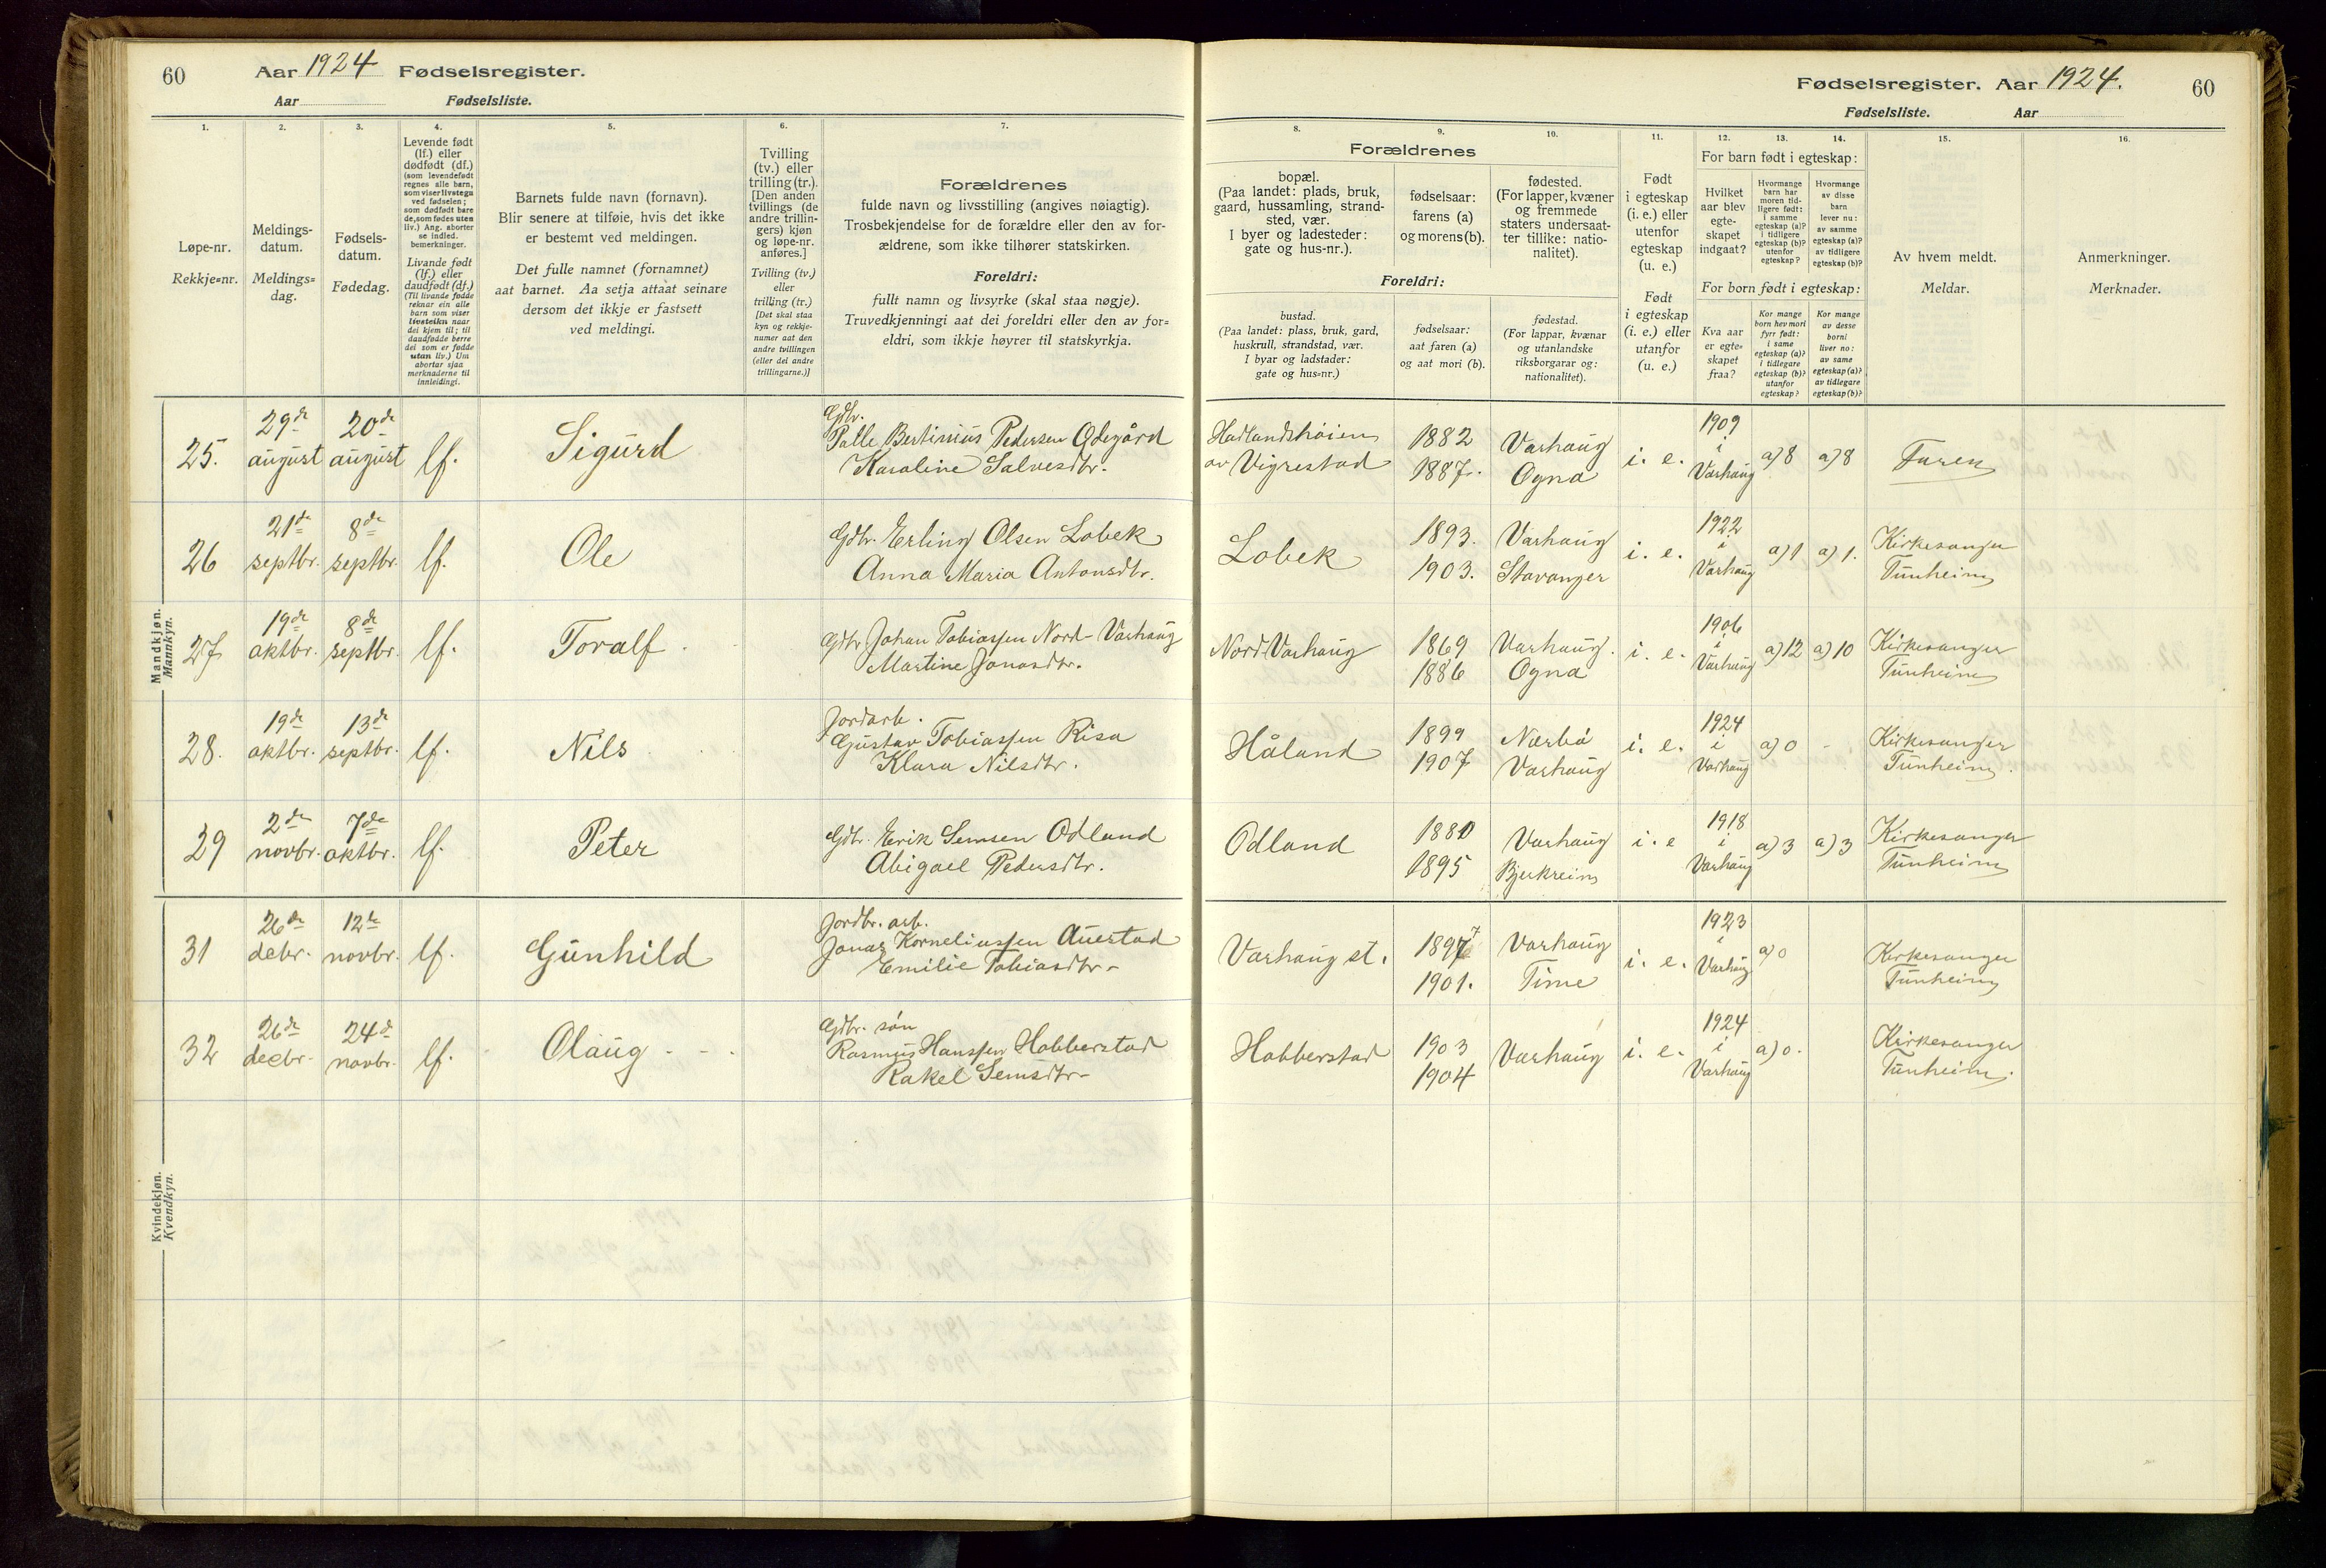 60 Aar 1924 Fødselsregister.
Aar Fødselsliste.
1.
Løpe-nr.
Rekkje=nr.
2.
Meldings-
datum.
Meldings=
dag.
3.
Fødsels-
datum.
Fødedag.
4.
Levende født
(lf.) eller
dødfødt (df.)
(som levendefødt
regnes alle barn,
som viser livstegn
ved fødselen;
som dødfødt bare
de, som fødes uten
liv.) Ang. aborter
se indled.
bemerkninger.
Livande født
(lf.) eller
daudfødt (df.)
(Til livande fødde
reknar ein alle
barn som viser
livsteikn naar
dei kjem til; til
daudfødde berre
dei som er fødde
utan liv.) Um
abortar sjaa
merknaderne til
innleidingi.
5.
Barnets fulde navn (fornavn).
Blir senere at tilføie, hvis det ikke
er bestemt ved meldingen.
Det fulle namnet (fornamnet)
aat barnet. Aa setja attaat seinare
dersom det ikkje er fastsett
ved meldingi.
6.
Tvilling
(tv.) eller
trilling (tr.).
[Den anden
tvillings (de
andre trillin-
gers) kjøn
og løpe-nr.
anføres.]
Tvilling (tv.)
eller
trilling (tr.)
[Det skal staa
kyn og rekkje-
numer aat den
andre tvillingen
(eller dei andre
trillingarne.)]
7.
Forældrenes
fulde navn og livsstilling (angives nøiagtig).
Trosbekjendelse for de forældre eller den av for-
ældrene, som ikke tilhører statskirken.
Foreldri:
fullt namn og livsyrke (skal staa nøgje).
Truvedkjenningi aat dei foreldri eller den av for=
eldri, som ikkje høyrer til statskyrkja.
Mandkjøn.
Mannkyn.
25. 29de august 20de august lf. Sigurd
Gdbr.
Palle Bertinius Pedersen Ødegård
Karoline Salvesdtr.
26 21de septbr. 8de septbr. lf. Ole
Gdbr. Erling Olsen Lobek
Anna Maria Antonsdtr.
27 19de oktbr. 8de septbr. lf. Toralf
Gdbr. Johan Tobiassen Nord-Varhaug
Martine Jonasdtr.
28. 19de oktbr. 13de septbr. lf. Nils
Jordarb.
Gustav Tobiassen Risa
Klara Nilsdtr.
29 2de novbr. 7de oktbr. lf. Peter
Gdbr. Erik Semsen Odland
Abigael Pedersdtr.
Kvindekjøn.
Kvendkyn.
31 26de debr. 12te novbr. lf. Gunhild
Jordbr. arb.
Jonas Korneliussen Auestad
Emilie Tobiasdtr.
32 26de decbr. 24de novbr. lf. Olaug
Gdbr. søn
Rasmus Hanssen Hobberstad
Rakel Semsdtr.
Fødselsregister. Aar 1924. 60
Fødselsliste. Aar
8.
Forældrenes
bopæl.
(Paa landet: plads, bruk,
gaard, hussamling, strand-
sted, vær.
I byer og ladesteder:
gate og hus-nr.).
Foreldri:
bustad.
(Paa landet: plass, bruk, gard,
huskrull, strandstad, vær.
I byar og ladstader:
gate og hus=nr.)
9.
fødselsaar:
farens (a)
og morens (b).
fødselsaar:
aat faren (a)
og aat mori (b).
10.
fødested.
(For lapper, kvæner
og fremmede
staters undersaat-
ter tillike: natio-
nalitet).
fødestad.
(For lappar, kvænar
og utanlandske
riksborgarar og:
nationalitet).
11.
Født
i egteskap
(i. e.) eller
utenfor
egteskap
(u. e.)
Født
i egteskap
(i. e.) eller
utanfor
(u. e.)
12. 13. 14.
For barn født i egteskap:
Hvilket
aar blev
egte-
skapet
indgaat?
Hvormange
barn har
moren tid-
ligere født:
i samme
egteskap (a)?
i tidligere
egteskap (b)?
utenfor
egteskap?
Hvormange
av disse
barn
lever nu:
av samme
egteskap (a)?
av tidligere
egteskap (b)?
For born født i egteskap:
Kva aar
er egte=
skapet
fraa?
Kor mange
born hev mori
fyrr født:
i same
egteskap (a)?
i tidlegare
egteskap (b)?
utanfor
egteskap?
Kor mange
av desse
borni
liver no:
av same
egteskap (a)?
av tidlegare
egteskap (b)?
15.
Av hvem meldt.
Meldar.
16.
Anmerkninger.
Merknader.
Hadlandshøien
av Vigrestad
1882
1887.
Varhaug
Ogna
i. e. 1909 i Varhaug a) 8 a) 8 Faren
Lobek
1893.
1903.
Varhaug
Stavanger
i. e. 1922 i Varhaug a) 1 a) 1.
Kirkesanger
Tunheim
Nord Varhaug
1869
1886
Varhaug.
Ogna
i. e. 1906 i Varhaug a) 12 a) 10
Kirkesanger
Tunheim
Håland
1899
1907
Nærbø
Varhaug
i. e. 1924 i Varhaug a) 0 -
Kirkesanger
Tunheim.
Odland
1880
1895
Varhaug
Bjerkreim
i. e 1918 i Varhaug a) 3 a) 3
Kirkesanger
Tunheim
Varhaug st.
1897
1901.
Varhaug
Time
i. e. 1923 i Varhaug a) 0
Kirkesanger
Tunheim
Hobberstad
1903
1904
Varhaug
i. e. 1924 i Varhaug a) 0.
Kirkesanger
Tunheim.